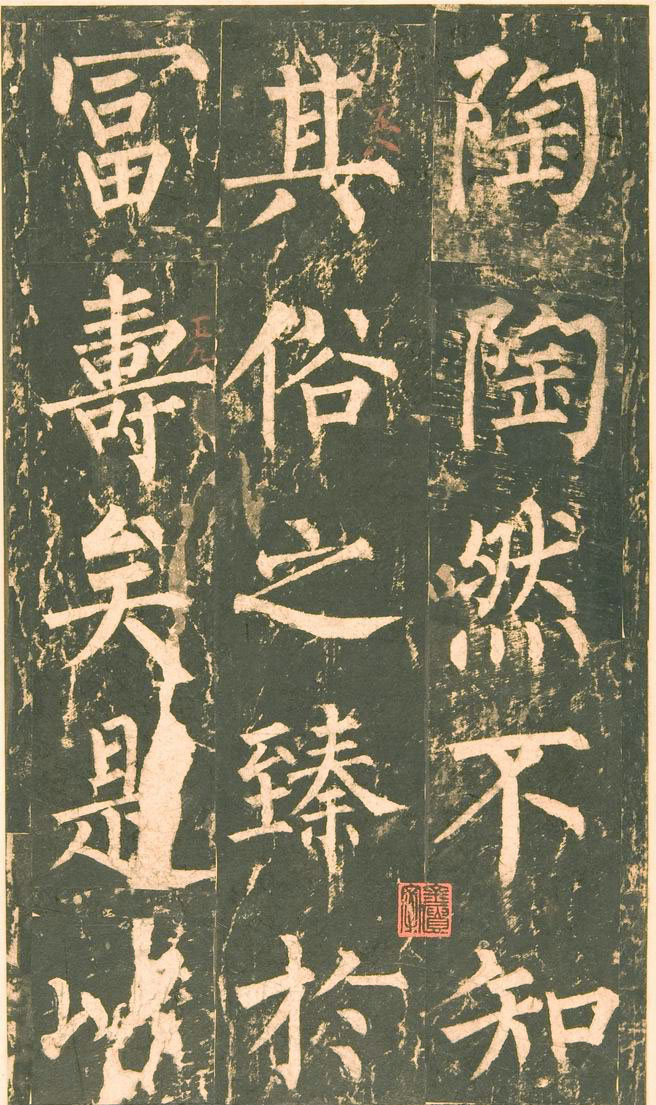 陶陶然不知
其俗之臻於
冨壽矣是此